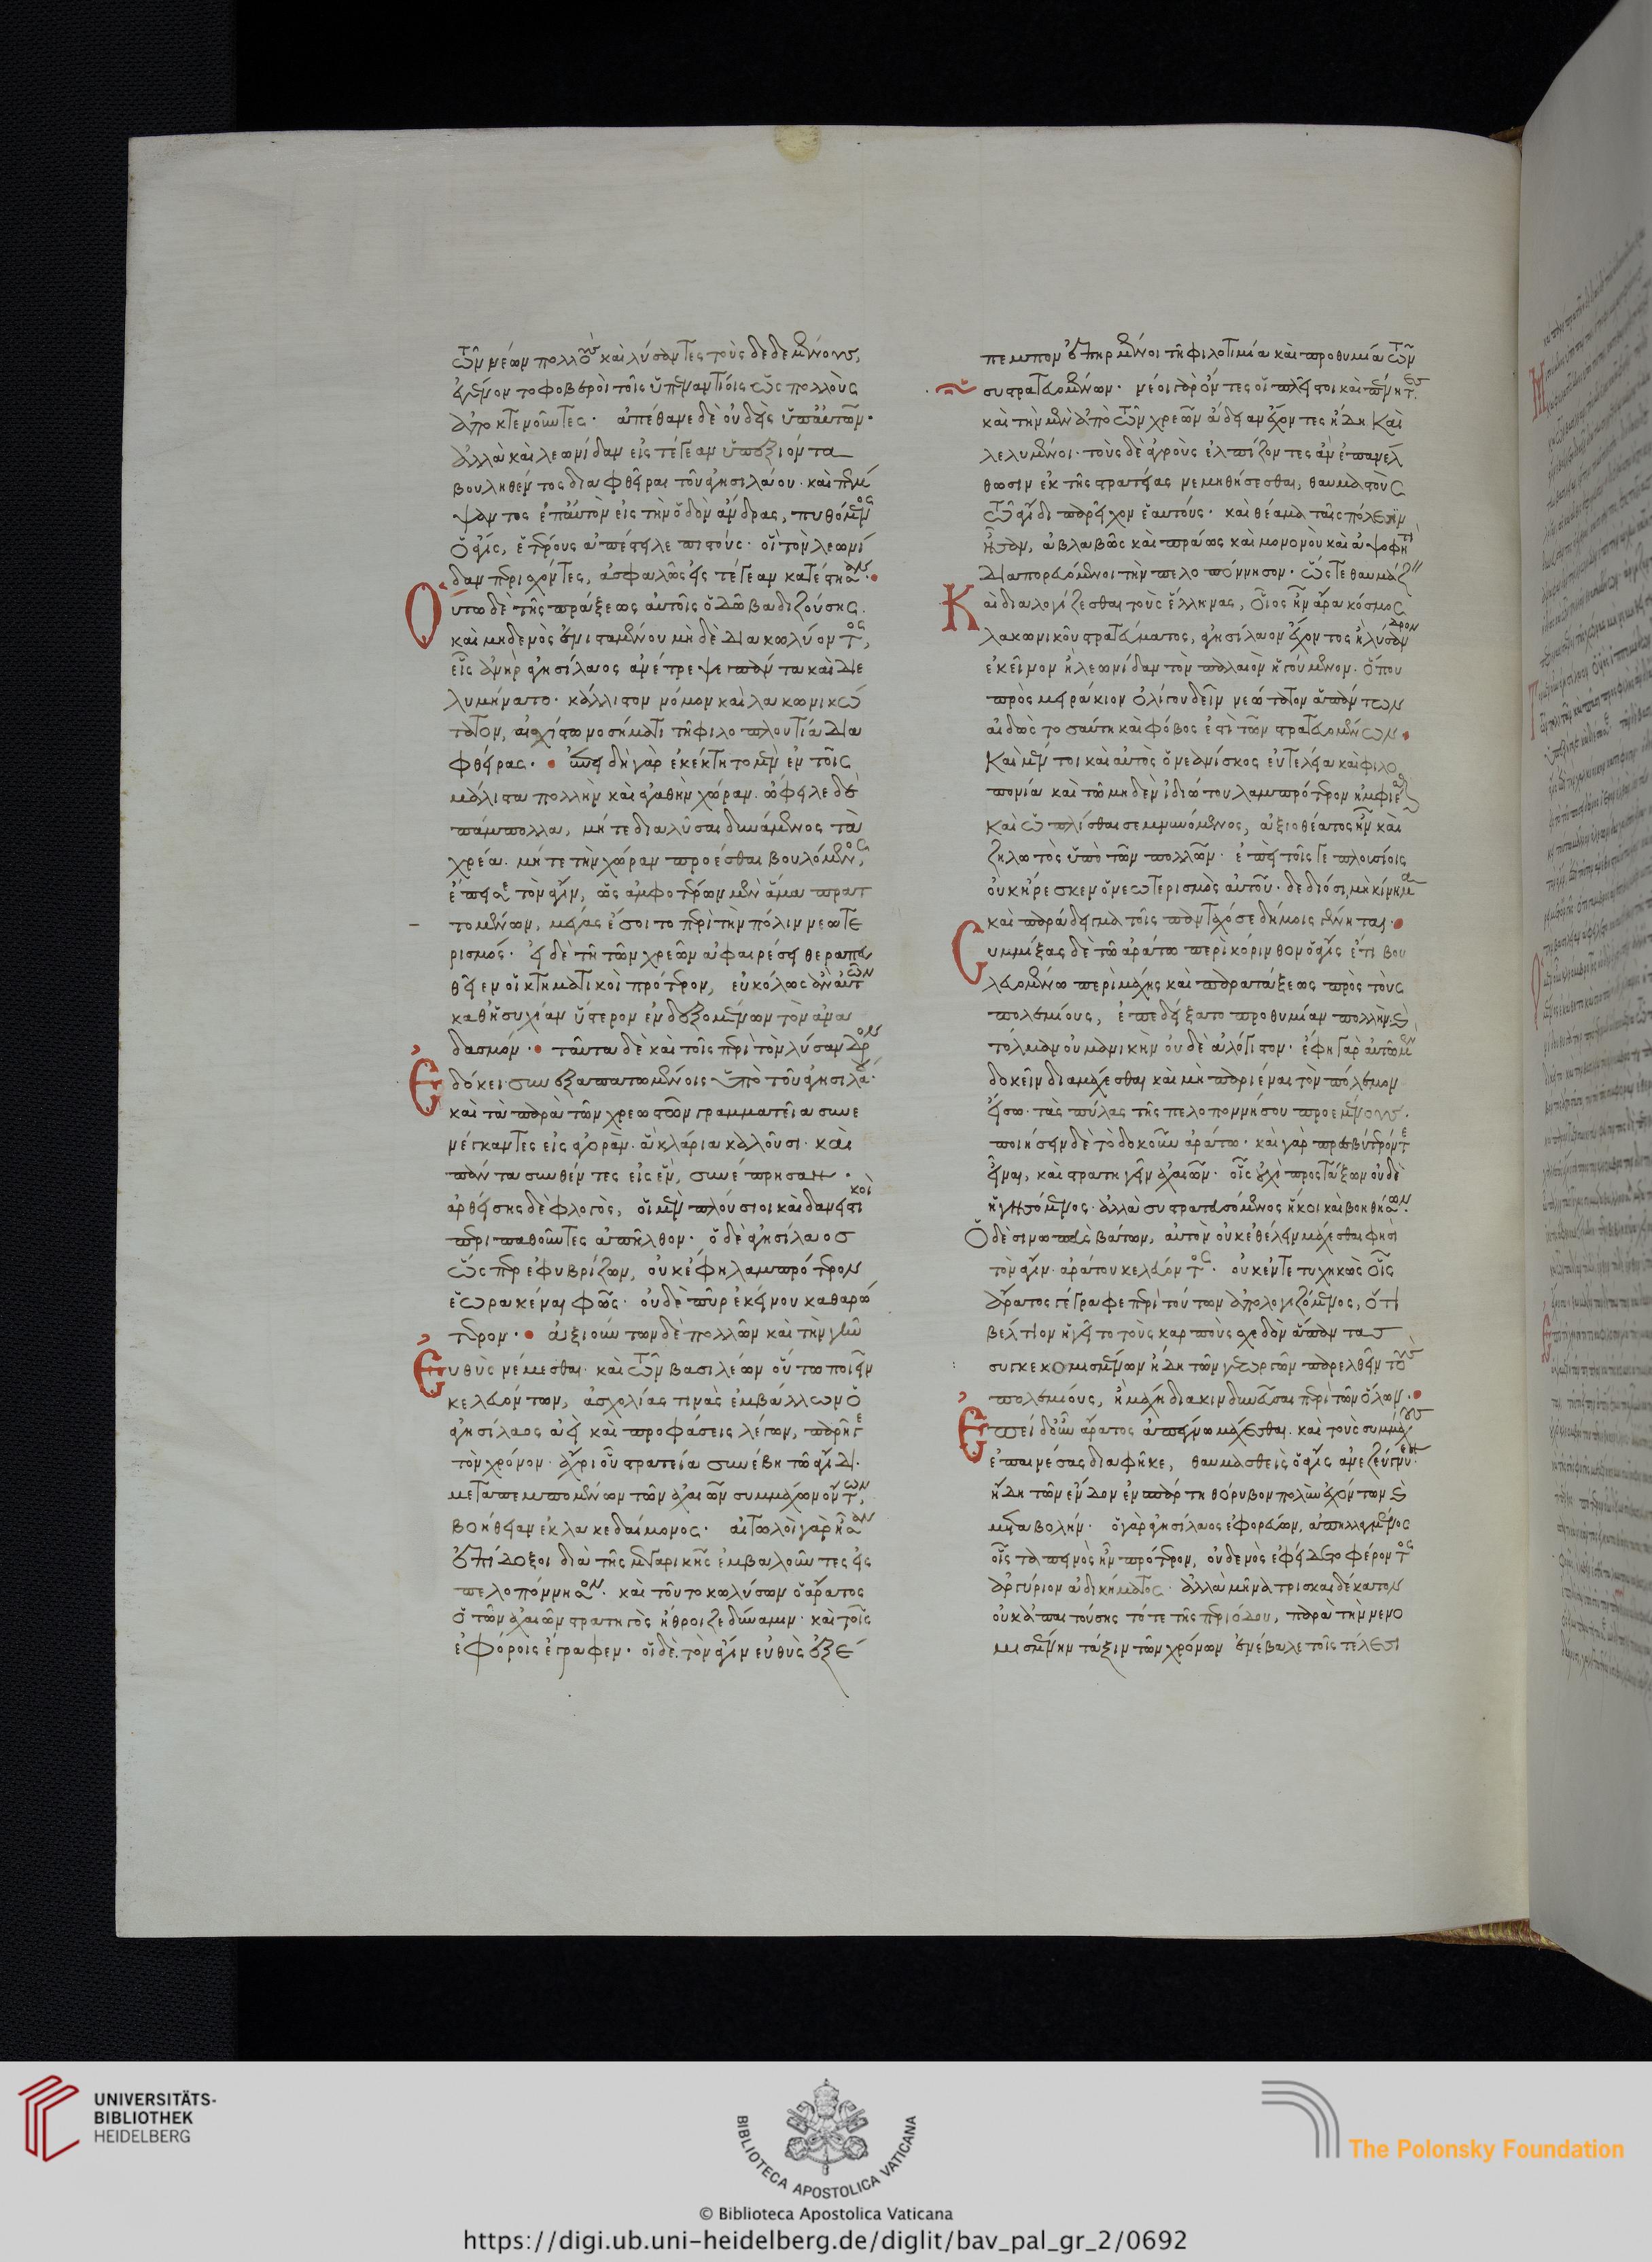 τῶν νέων πολλοὺς καὶ λύσαντες τοὺς δεδεμένους,
ἐγένοντο φοβεροὶ τοῖς ὑπεναντίοις ὡς πολλοὺς
ἀποκτενοῦντες. ἀπέθανε δὲ οὐδεὶς ὑπ' αὐτῶν.
ἀλλὰ καὶ λεωνίδαν εἰς τέγεαν ὑπεξιόντα
βουληθέντος διαφθεῖραι τοῦ ἀγησιλάου. καὶ πέμ
ψαντος ἐπ' αὐτὸν εἰς τὴν ὁδὸν ἄνδρας, πυθόμενος
ὁ ἆγις, ἑτέρους ἀπέστειλε πιστούς. οἳ τὸν λεωνί
δαν περισχόντες, ἀσφαλῶς εἰς τέγεαν κατέστησαν.
Οὕτω δὲ τῆς πράξεως αὐτοῖς ὁδῷ βαδιζούσης.
καὶ μηδενὸς ἐνισταμένου μηδὲ διακωλύοντος,
εἷς ἀνὴρ ἀγησίλαος ἀνέτρεψε πάντα καὶ διε
λυμήνατο. κάλλιστον νόμον καὶ λακωνικώ
τατον, αἰσχίστῳ νοσήματι τῇ φιλοπλουτίᾳ δια
φθείρας. ἐπεὶ δὴ γὰρ ἐκέκτητο μὲν ἐν τοῖς
μάλιστα πολλὴν καὶ ἀγαθὴν χώραν. ὤφειλε δὲ
πάμπολλα, μήτε διαλῦσαι δυνάμενος τὰ
χρέα. μήτε τὴν χώραν προέσθαι βουλόμενος,
ἔπεισε τὸν ἆγιν, ὡς ἀμφοτέρων μὲν ἅμα πρατ
τομένων, μέγας ἔσοιτο περὶ τὴν πόλιν νεωτε
ρισμός. εἰ δὲ τῇ τῶν χρεῶν ἀφαιρέσει θεραπευ
θεῖεν οἱ κτηματικοὶ πρότερον, εὐκόλως ἂν αὐτῶν
καθ' ἡσυχίαν ὕστερον ἐνδεξομένων τὸν ἀνα
δασμόν. ταῦτα δὲ καὶ τοῖς περὶ τὸν λύσανδρον
Ἐδόκει συνεξαπατωμένοις ὑπὸ τοῦ ἀγησιλά.
καὶ τὰ παρὰ τῶν χρεωστῶν γραμματεῖα συνε
νέγκαντες εἰς ἀγορὰν. ἃ κλάρια καλοῦσι. καὶ
πάντα συνθέντες εἰς ἓν, συνέπρησαν.
ἀρθείσης δὲ φλογὸς, οἱ μὲν πλούσιοι καὶ δανειστικοὶ
περιπαθοῦντες ἀπῆλθον. ὁ δὲ ἀγησίλαος
ὥσπερ ἐφυβρίζων, οὐκ ἔφη λαμπρότερον
ἑωρακέναι φῶς. οὐδὲ πῦρ ἐκείνου καθαρώ
τερον. ἀξιούντων δὲ πολλῶν καὶ τὴν γῆν
Εὐθὺς νέμεσθαι. καὶ τῶν βασιλέων οὕτω ποιεῖν
κελευόντων, ἀσχολίας τινὰς ἐμβάλλων ὁ
ἀγησίλαος ἀεὶ καὶ προφάσεις λέγων, παρῆγε
τὸν χρόνον. ἄχρι οὗ στρατεία συνέβη τῷ ἄγιδι.
μεταπεμπομένων τῶν ἀχαιῶν συμμάχων ὄντων,
βοήθειαν ἐκ λακεδαίμονος. αἰτωλοὶ γὰρ ἦσαν
ἐπίδοξοι διὰ τῆς μεγαρικῆς ἐμβαλοῦντες εἰς
πελοπόννησον. καὶ τοῦτο κωλύσων ὁ ἄρατος
ὁ τῶν ἀχαιῶν στρατηγὸς ἤθροιζε δύναμιν. καὶ τοῖς
ἐφόροις ἔγραφεν. οἱ δὲ τὸν ἆγιν εὐθὺς ἐξέ
πεμπον ἐπηρμένοι τῇ φιλοτιμίᾳ καὶ προθυμίᾳ τῶν
συστρατευομένων. νέοι γὰρ ὄντες οἱ πλεῖστοι καὶ πένητες
καὶ τὴν μὲν ἀπὸ τῶν χρεῶν ἄδειαν ἔχοντες ἤδη καὶ
λελυμένοι. τοὺς δὲ ἀγροὺς ἐλπίζοντες ἂν ἐπανέλ
θωσιν ἐκ τῆς στρατείας νεμηθήσεσθαι, θαυμαστοὺς
τῷ ἄγιδι παρεῖχον ἑαυτούς. καὶ θέαμα ταῖς πόλεσιν
ἦσαν, ἀβλαβῶς καὶ πράως καὶ μονονοὺ καὶ ἀψοφητὶ
διαπορευόμενοι τὴν πελοπόννησον. ὥστε θαυμάζ
Καὶ διαλογίζεσθαι τοὺς ἕλληνας, οἷος ἦν ἄρα κόσμος
λακωνικοῦ στρατεύματος, ἀγησίλαον ἔχοντος ἢ λύσανδρον
ἐκεῖνον ἢ λεωνίδαν τὸν παλαιὸν ἡγούμενον. ὅπου
πρὸς μειράκιον ὀλίγου δεῖν νεώτατον ἁπάντων
αἰδὼς τοσαύτη καὶ φόβος ἐστὶ τῶν στρατευομένων.
Καὶ μέντοι καὶ αὐτὸς ὁ νεανίσκος εὐτελείᾳ καὶ φιλο
πονίᾳ καὶ τῷ μηδὲν ἰδιώτου λαμπρότερον ἠμφιέσ
καὶ ὡπλίσθαι σεμνυνόμενος, ἀξιοθέατος ἦν καὶ
ζηλωτὸς ὑπὸ τῶν πολλῶν. ἐπεὶ τοῖς γε πλουσίοις
οὐκ ἤρεσκεν ὁ νεωτερισμὸς αὐτοῦ. δεδιόσι, μὴ κίνημα
καὶ παράδειγμα τοῖς πανταχόσε δήμοις γένηται.
Συμμίξας δὲ τῷ ἀράτῳ περὶ κόρινθον ὁ ἆγις ἔτι βου
λευομένῳ περὶ μάχης καὶ παρατάξεως πρὸς τοὺς
πολεμίους, ἐπεδείξατο προθυμίαν πολλὴν καὶ
τόλμαν οὐ μανικὴν οὐδὲ ἀλόγιστον. ἔφη γὰρ αὐτῷ μὲν
δοκεῖν διαμάχεσθαι καὶ μὴ παριέναι τὸν πόλεμον
εἴσω. τὰς πύλας τῆς πελοποννήσου προεμένους.
ποιήσειν δὲ τὸ δοκοῦν ἀράτῳ. καὶ γὰρ πρεσβύτερόν τε
εἶναι, καὶ στρατηγεῖν ἀχαιῶν. οἷς οὐχὶ προστάξων οὐδὲ
ἡγησόμενος. ἀλλὰ συστρατευσόμενος ἥκοι καὶ βοηθήσων.
Ὁ δὲ σινωπεὺς βάτων, αὐτὸν οὐκ ἐθέλειν μάχεσθαι φησὶ
τὸν ἆγιν. ἀράτου κελεύοντος. οὐκ ἐντετυχηκὼς οἷς
ἄρατος γέγραφε περὶ τούτων ἀπολογιζόμενος, ὅτι
βέλτιον ἡγεῖτο τοὺς καρποὺς σχεδὸν ἅπαντας
συγκεκομισμένων ἤδη τῶν γεωργῶν παρελθεῖν τοὺς
πολεμίους, ἢ μάχῃ διακινδυνεῦσαι περὶ τῶν ὅλων.
Ἐπεὶ δ' οὖν ἄρατος ἀπέγνω μάχεσθαι. καὶ τοὺς συμμάχους
ἐπαινέσας διαφῆκε, θαυμασθεὶς ὁ ἆγις ἀνεζεύγνυεν.
ἤδη τῶν ἔνδον ἐν σπάρτῃ θόρυβον πολὺν ἐχόντων καὶ
μεταβολήν. ὁ γὰρ ἀγησίλαος ἐφορεύων, ἀπηλλαγμένος
οἷς ταπεινὸς ἦν πρότερον, οὐδενὸς ἐφείδετο φέροντος
ἀργύριον ἀδικήματος. ἀλλὰ μῆνα τρισκαιδέκατον
οὐκ ἀπαιτούσης τότε τῆς περιόδου, παρὰ τὴν νενο
μισμένην τάξιν τῶν χρόνων ἐνέβαλε τοῖς τέλεσι
UNIVERSITÄTS-
BIBLIOTHEK
HEIDELBERG
BIBLIOTECA APOSTOLICA VATICANA
© Biblioteca Apostolica Vaticana
https://digi.ub.uni-heidelberg.de/diglit/bav_pal_gr_2/0692
The Polonsky Foundation